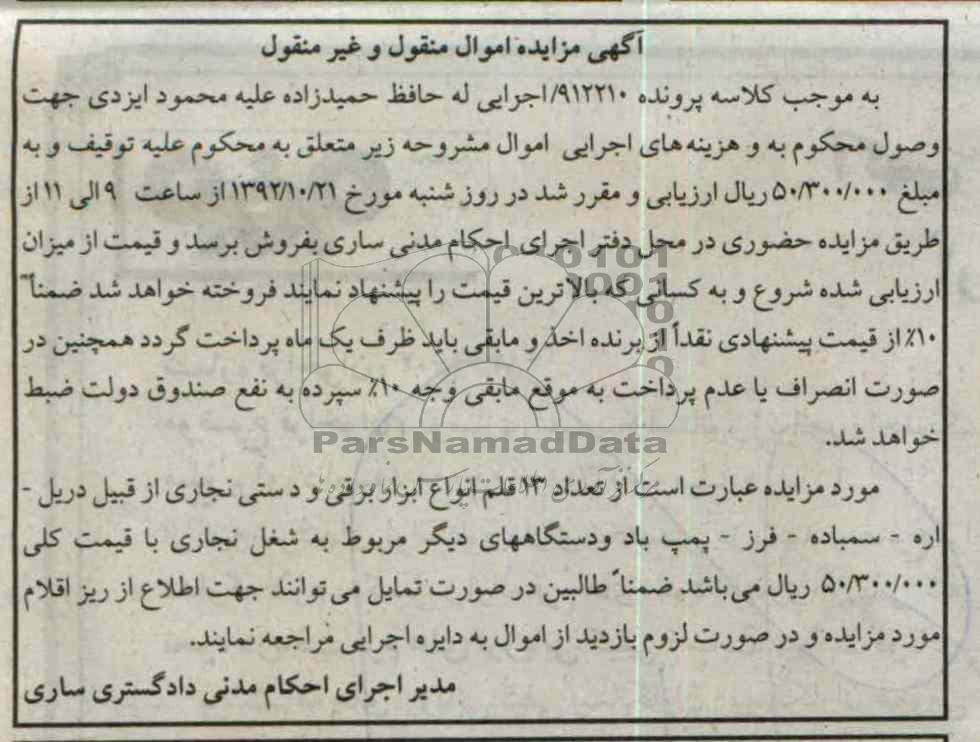 آگهی مزایده اموال منقول و غیر منقول
به موجب کلاسه پرونده ۹۱۲۲۱۰/اجرایی له حافظ حمیدزاده علیه محمود ایزدی جهت
وصول محکوم به و هزینه های اجرایی اموال مشروحه زیر متعلق به محکوم علیه توقیف و به
مبلغ ۵۰/۳۰۰/۰۰۰ ریال ارزیابی و مقرر شد در روز شنبه مورخ ۱۳۹۲/۱۰/۲۱ از ساعت ۹ الی ۱۱ از
طریق مزایده حضوری در محل دفتر اجرای احکام مدنی ساری بفروش برسد و قیمت از میزان
ارزیابی شده شروع و به کسانی که بالاترین قیمت را پیشنهاد نمایند فروخته خواهد شد ضمناً
۱۰٪ از قیمت پیشنهادی نقداً از برنده اخذ و مابقی باید ظرف یک ماه پرداخت گردد همچنین در
صورت انصراف یا عدم پرداخت به موقع مابقی وجه ۱۰٪ سپرده به نفع صندوق دولت ضبط
خواهد شد.
ParsNamadData
مورد مزایده عبارت است از تعداد ۱۳ قلم انواع ابزار برقی و دستی نجاری از قبیل دریل -
اره - سمباده - فرز - پمپ باد ودستگاههای دیگر مربوط به شغل نجاری با قیمت کلی
۵۰/۳۰۰/۰۰۰ ریال می باشد ضمناً طالبین در صورت تمایل می توانند جهت اطلاع از ریز اقلام
مورد مزایده و در صورت لزوم بازدید از اموال به دایره اجرایی مراجعه نمایند.
مدیر اجرای احکام مدنی دادگستری ساری